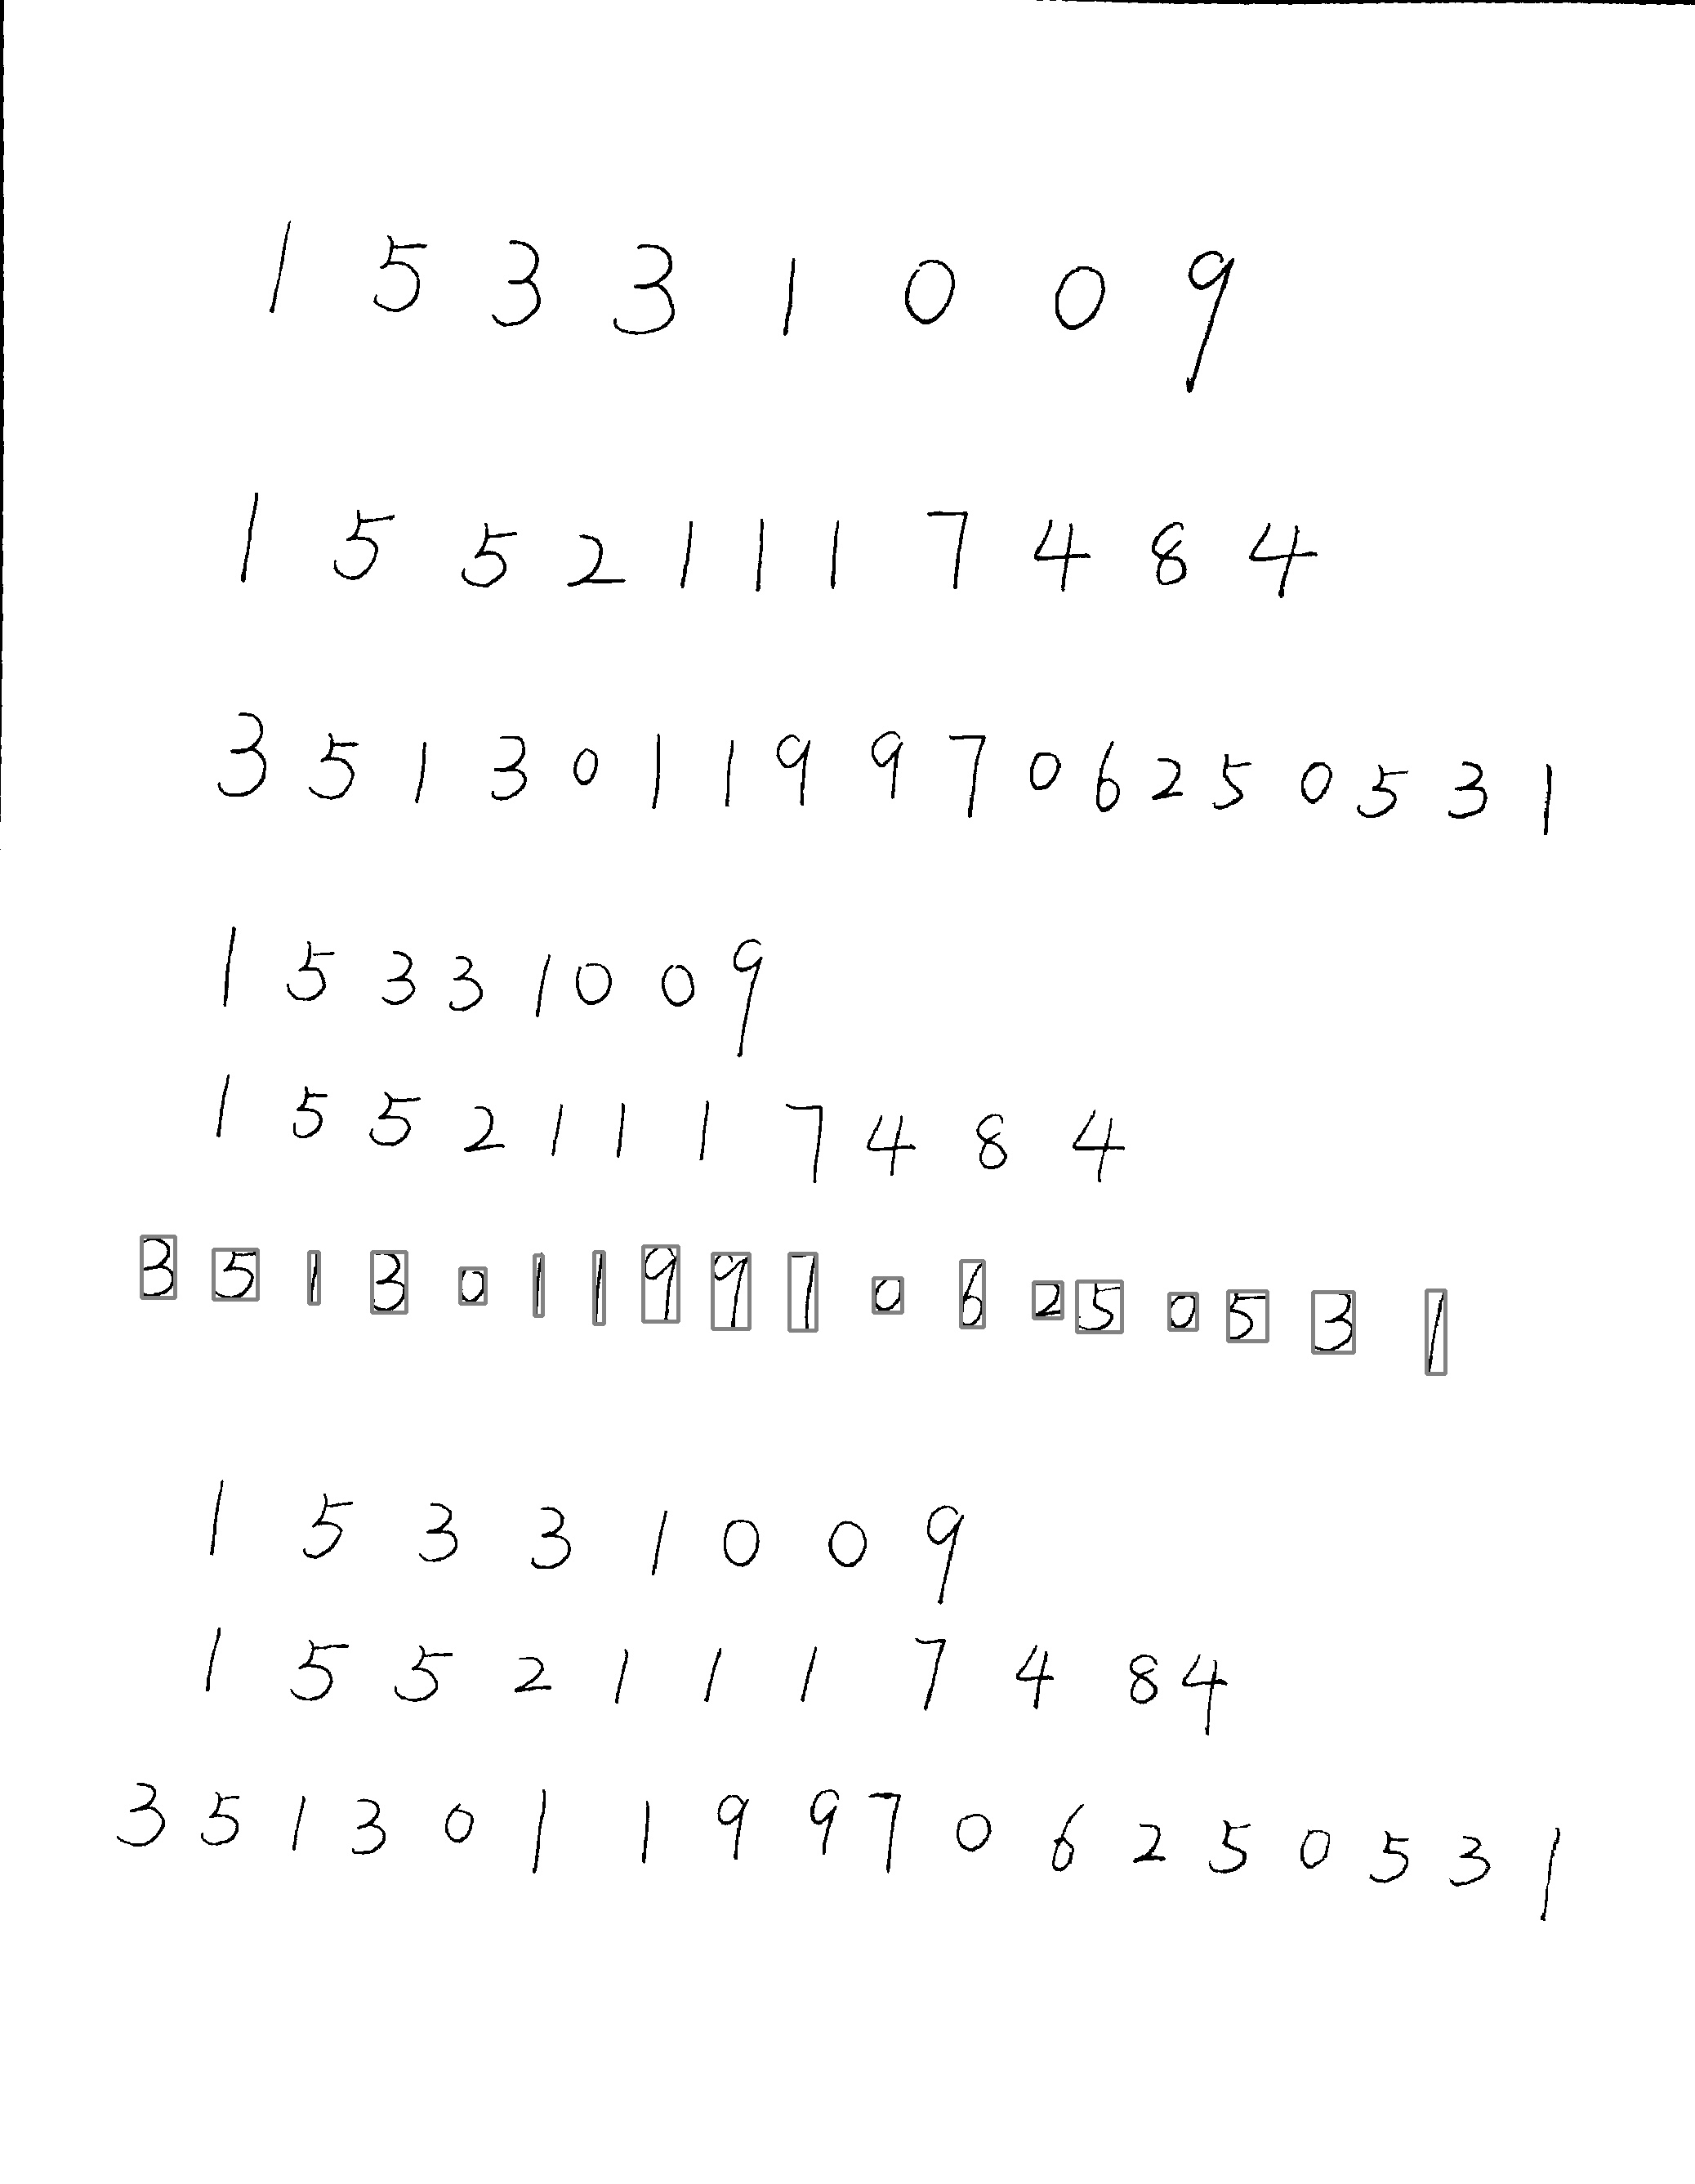 15331009
15521117484
351301199706250531
15331009
15521117484
351301199706250531
15331009
15521117484
351301199706250531